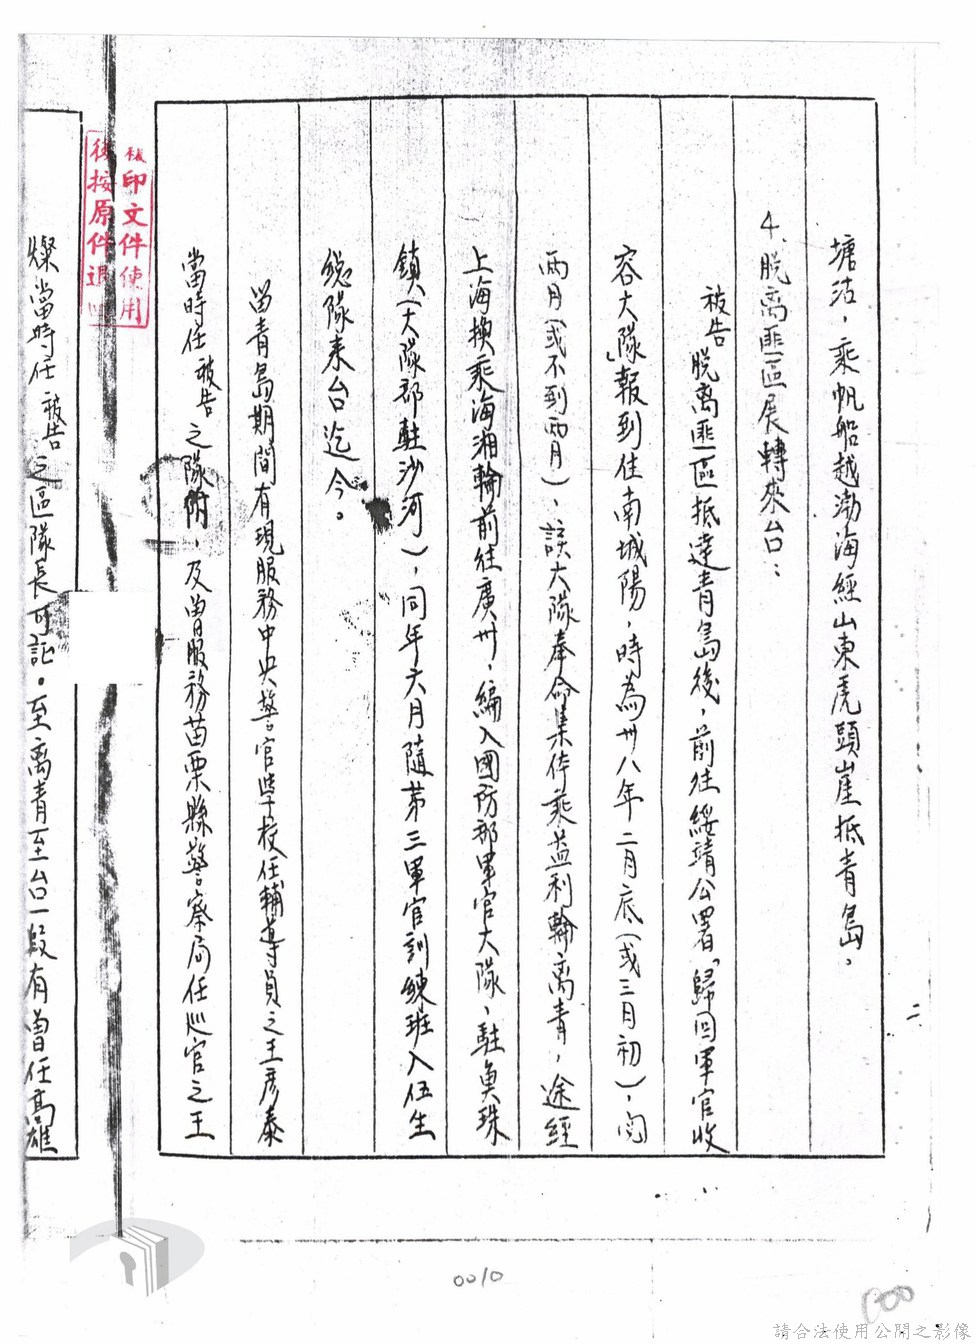 塘沽，乘帆船越渤海經山東虎頭崖抵青島。
4、脫离匪區展轉來台：
被告脫离匪區抵達青島後，前往綏靖公署「歸回軍官收
容大隊」報到住南城陽，時為卅八年二月底（或三月初），閱
兩月（或不到兩月），該大隊奉命集体乘益利輪离青，途經
上海換乘海湘輪前往廣州，編入國防部軍官大隊，駐魚珠
鎮（大隊部駐沙河），同年六月隨第三軍官訓練班入伍生
總隊來台迄今。
留青島期間有現服務中央警官學校任輔導員之王彥泰
當時任被告之隊附，及曾服務苗栗縣警察局任巡官之王
燦當時任被告之區隊長可證。至离青至台一段有曾任高雄
二
複印文件使用
後按原件退
0010
請合法使用公開之影像